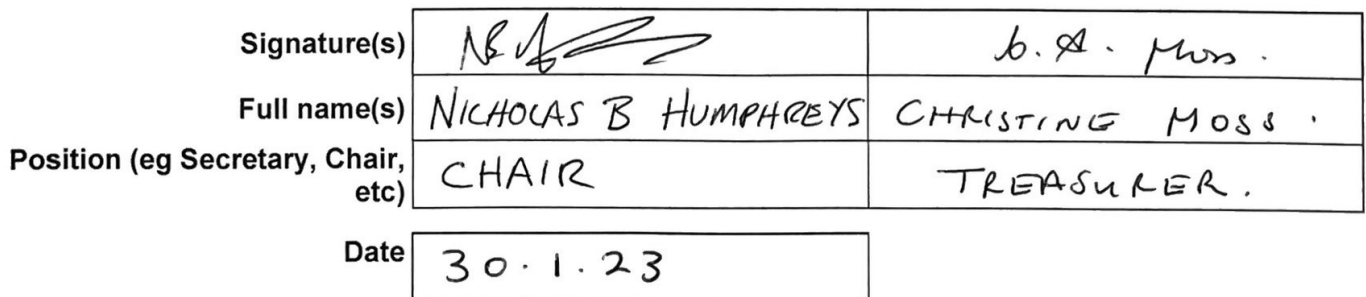 Signature(s) A. Moss.
Full name(s) NICHOLAS B HUMPHREYS CHRISTINE MOSS.
Position (eg Secretary, Chair, etc) CHAIR TREASURER.
Date 30.1.23